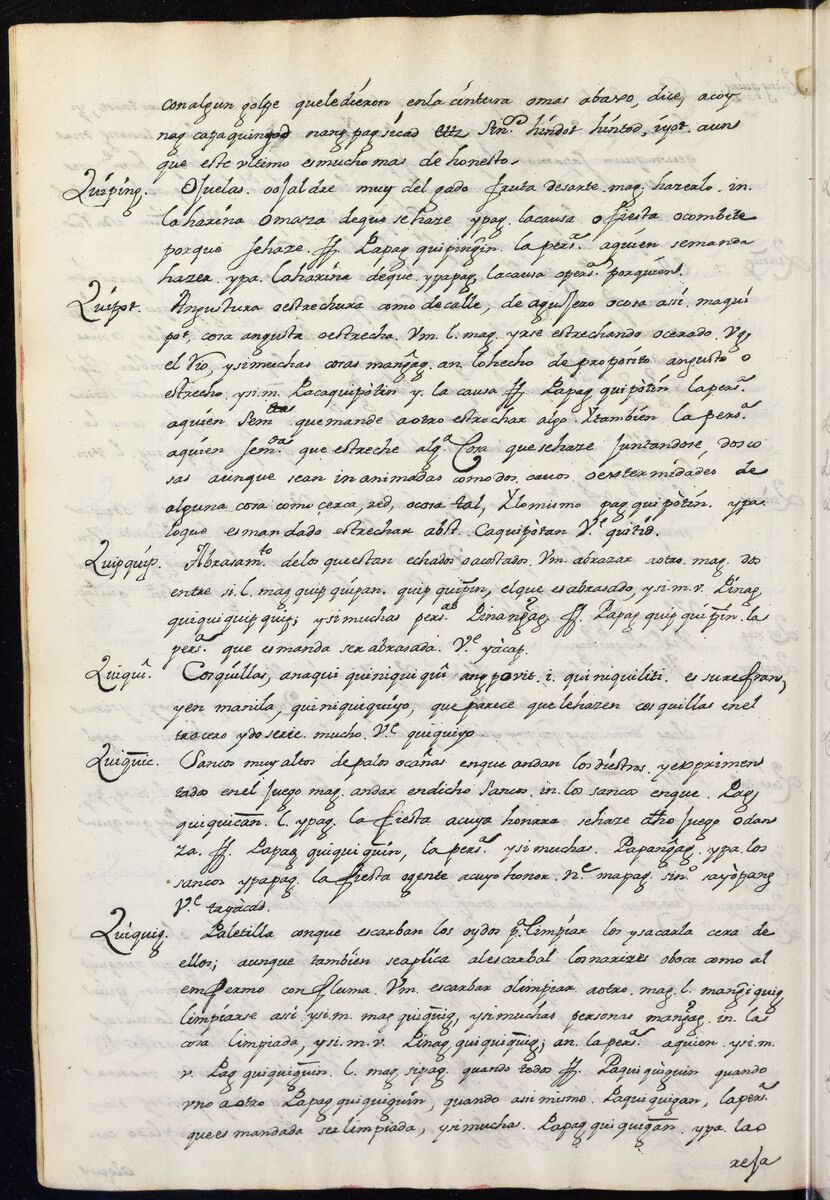 con algun golpe que le dieron en la cintura o mas abaxo, dice, acoy
nag capa quingod nang pag sicad sin.º hindot hintod, iyot. aun
que este vltimo es mucho mas de honesto.
Quiping. Ojuelas. o ojaldre muy delgado fruta desarte, mag, hazerlo. in.
la harina o masa de que se haze ypag. la causa o fiesta o combite
porque se haze. ff. Papag quipingin. la pers.ª aquien se manda
hazer. ypa. la harina de que. ypapag, la causa o pers.ª porquien.
Quipot. Angustura o estrechura como de calle, de agujero o cosa assi. maqui
pot, cosa angusta o estrecha. Vm. l. mag. yrse estrechando o cerado. Vg.
el Rio, y si muchas cosas mangag. an. lo hecho de proposito angusto o
estrecho. y si.m. Pacaquipòtin y. la causa ff. Papag quipotin la pers.ª
aquien sem.da que mande a otro estrechar algo. Y tambien la pers.ª
aquien sem.da que estreche alg.ª Cosa que se haze juntandose, dos co
sas aunque sean in animadas como dos cavos o extermidades de
alguna cosa como cerca, red, o cosa tal, Y lo mismo pag quipòtin. ypa.
lo que es mandado estrechar abst. Caquipòtan V.e quitid.
Quipquip. Abrasam.to de los que estan echados o acostados. Vm. abrazar a otro. mag. dos
entre si. l. mag quip quipan. quip quipin, el que es abrasado, y si.m.v. Pinag
quiquiquip quip; y si muchas pers.as Pinangag, ff. Papag quip quipin. la
pers.ª que es manda ser abrasada. V.e yàcap.
Quiqui. Cosquillas, anaqui quiniqui qui ang povit. i. quiniquiliti. es su refran,
y en manila, quiniquiquiyo, que parece que le hazen cosquillas en el
tracero y do se rie. mucho. V.e quiquiyo
Quiquic. Sancos muy altos de palos o cañas en que andan los diestros, y experimen
tados en el juego mag. andar en dicho Sanco. in. los sancos en que. Pag,
quiquican. l. ypag. la fiesta a cuya honrra se haze dho juego o dan
za. ff. Papag quiquiquin, la pers.ª y si muchas. Papangag. ypa. los
sancos ypapag. la fiesta o gente a cuyo honor. N.e mapag. sin.º sayòpang
V.e tayàcad.
Quiquig. Paletilla con que escarban los oydos p.ª limpiar los y sacar la cera de
ellos; aunque tambien se aplica al escarbal los narizes o boca como al
enfermo con Pluma. Vm. escarbar o limpiar a otro. mag. l. mangiquig,
limpiarse assi y si.m. mag quiquig, y si muchas personas mangag. in. las
cosa limpiada, y si.m.v. Pinag quiquiquig; an. la pers.ª aquien. y si.m.
v. Pag quiquiquin. l. mag. sipag. quando todos ff. Paquiquiguin quando
vno a otro Papag quiquiguin, quando assi mismo. Paquiquigan, la pers.ª
que es mandada ser limpiada, y si mucha. Papag quiquigan. ypa. las